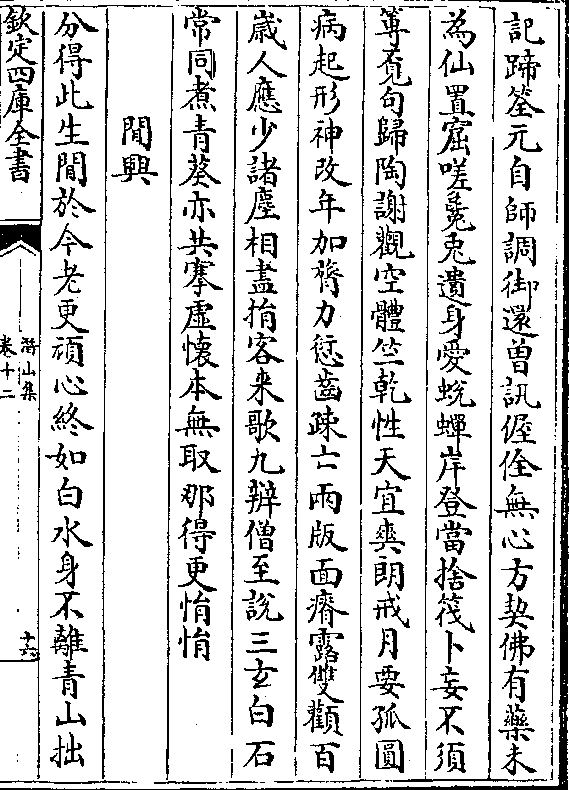 記蹄筌元自師調御還曽訊偓佺無心方契佛有藥未
為仙置窟嗟毚兎遺身愛蛻蟬岸登當捨筏卜妄不須
篿覔句歸陶謝觀空體竺乾性天宜爽朗戒月要孤圓
病起形神改年加膂力愆齒疎亡兩版面瘠露雙顴百
歲人應少諸塵相盡捐客来歌九辯僧至說三𤣥白石
常同煮青葵亦共搴虚懐本無取那得更悁悁
閒興
分得此生閒於今老更頑心終如白水身不離青山拙
欽定四庫全書
潛山集
卷十二
十六